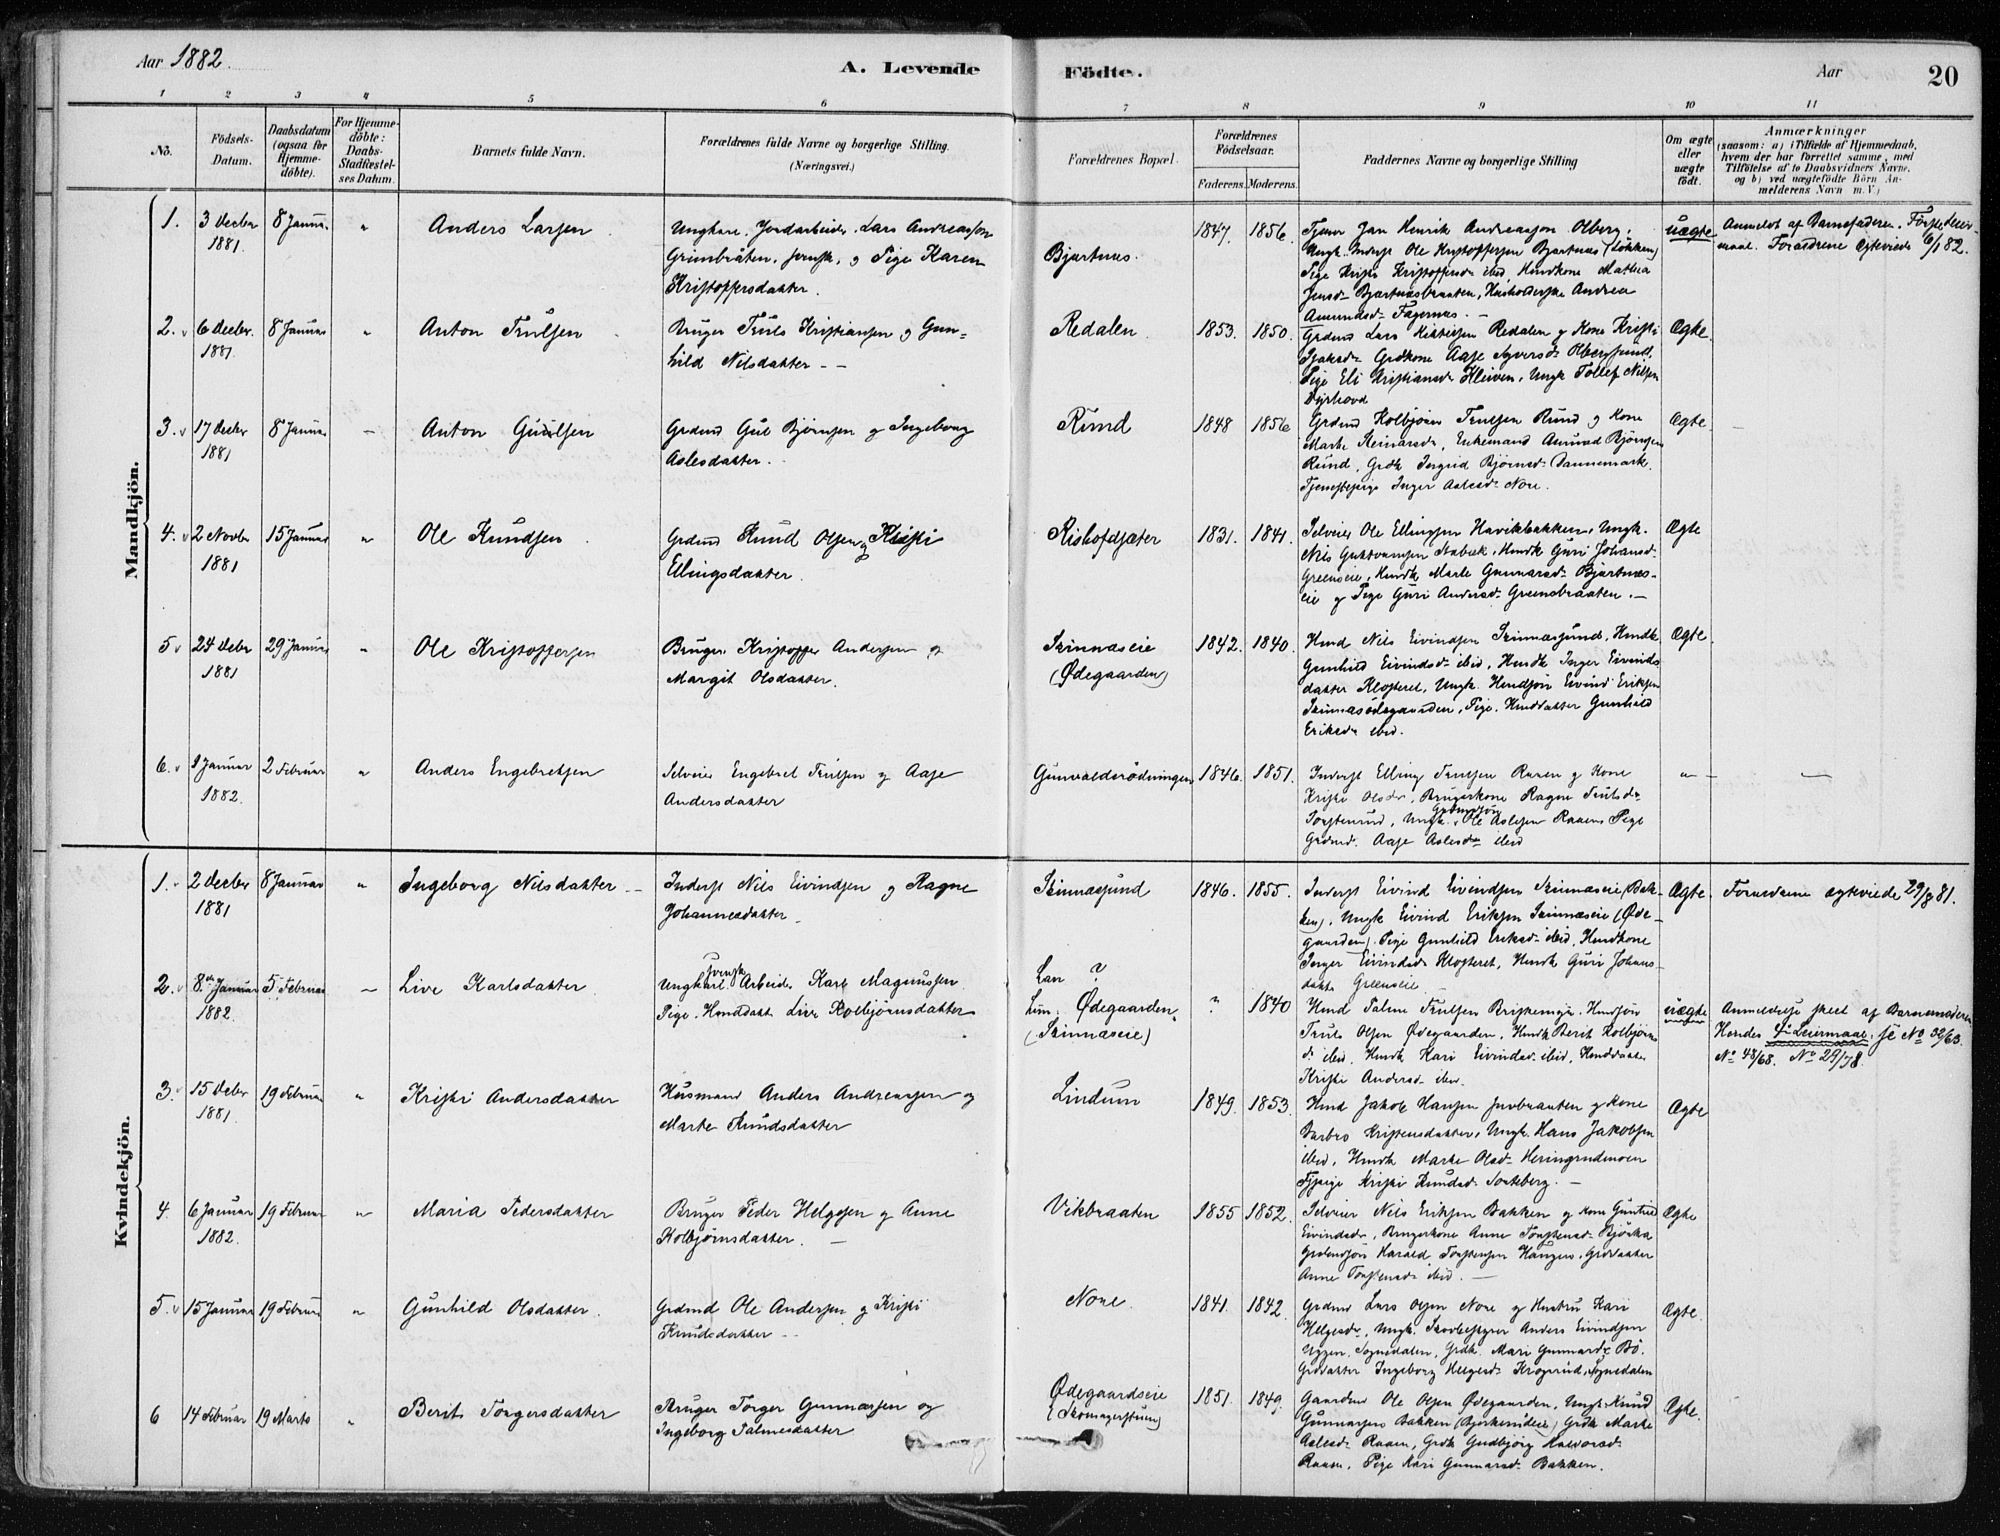 Aar 1882.
A. Levende Födte.
Aar
20
1 2 3 4 5 6 7 8 9 10 11
No.
Födsels-Datum.
Daabsdatum (ogsaa for Hjemmedöbte).
For Hjemmedöbte: Daabs-Stadfæstelses Datum.
Barnets fulde Navn.
Forældrenes fulde Navne og borgerlige Stilling. (Næringsvei.)
Forældrenes Bopæl.
Forældrenes Födselsaar.
Faderens. Moderens.
Faddernes Navne og borgerlige Stilling
Om ægte eller uægte födt.
Anmærkninger
(saasom: a) i Tilfælde af Hjemmedaab, hvem der har forrettet samme, med Tilföielse af to Daabsvidners Navne, og b) ved uægtefödte Börn Anmelderens Navn m. V.)
Mandkjön.
1. 3 Decbr 1881 8 Janua. " Anders Larsen
Ungkarl, Jordarbeider, Lars Andreasson
Grinibråten, svensk, og Pige Karen
Kristoffersdatter.
Bjartnæs. 1847. 1856.
Tjener Jan Henrik Andreasson Olberg,
Ungk. Inderst Ole Kristoffersen Bjartnæs (Løkken)
Pige Kristi Kristoffersd. ibid Hmdkone Mathea
Jensd. Bjartnæsbraaten, Husholderske Andrea
Amundsd. Fagernæs.
uægte
Anmeldt af Barnefaderen. Første Leiermaal. Forældrene Ægteviede 6/1 82.
2. 6 Decbr. 1881. 8 Januar " Anton Trulsen
Bruger Truls Kristiansen og Gunhild
Nilsdatter
Redalen 1853. 1850.
Grdmd Lars Redalen og Kone Kristi
Grdkone Aase Syversd. Olbergsund,
Pige Eli Kristiansd. Kleiven, Ungk Tollef Nilsen
Dyrhovd
Ægte.
3. 17 Decbr 1881 8 Januar Anton Gulsen
Grdmd Gul Bjørnsen og Ingeborg
Aslesdatter.
Rund 1848 1856
Grdmd Kolbjørn Trulsen Rund og Kone
Marte Reinarsd., Enkemand Amund Bjørnsen
Rund, Grdk Ingrid Bjørnsd. Dannemark,
Tjenestepige Inger Aslesd. Nore.
Ægte.
4. 2 Novbr 1881 15 Januar " Ole Knudsen
Grdmd Knud Olsen og Kristi
Ellingsdatter.
Rishofdsæter 1831. 1841.
Selveier Ole Ellingsen Havikbakken, Ungk.
Nils Gustavsen, Hmdk Guri Johansd.
Greenseie, Hmdk Marte Gunnarsd. Bjartnæseie
og Pige Guri Andersd. Greensbraaten.
Ægte
5 24 Decbr 1881 29 Januar " Ole Kristoffersen
Bruger Kristoffer Andersen og
Margit Olsdatter.
Skinnæseie (Ødegaarden) 1842. 1840.
Hmd Nils Eivindsen Skinnæssund, Hmdk
Gunhild Eivindsd. ibid, Hmdk Inger Eivindsdatter
Klosteret, Ungk. Hmdsøn Eivind Eriksen
Skinnæsødegaarden, Pige Hmddatter Gunhild
Eriksd. ibid.
Ægte.
6. 1 Januar 1882. 2 Februar " Anders Engebretsen
Selveier Engebret Trulsen og Aase
Andersdatter
Gunvaldsrødningen 1846. 1851.
Inderst Elling Trulsen Raaen og Kone
Kristi Olsd., Brugerkone Ragne Trulsd.
Torstenrud, Ungk. Grdmdsøn Ole Aslesen Raaen, Pige
Grdmd. Aase Aslesd. ibid
"
Kvindekjön.
1. 2 Decbr 1881 8 Januar " Ingeborg Nilsdatter
Inderst Nils Eivindsen og Ragne
Johannesdatter
Skinnæssund 1846. 1855.
Inderst Eivind Eivindsen Skinnæseie (Bakken),
Ungk Eivind Eriksen Skinnæseie (Ødegaarden).
Pige Gunhild Eriksd. ibid, Hmdkone
Inger Eivindsd. Klosteret, Hmdk Guri Johansdatter
Greenseie.
Ægte.
Forældrene ægteviede 29/8 81.
2. 8de Januar 1882. 5 Februar Live Karlsdatter
Ungkarl svensk Arbeider Karl Magnussen
Pige, Hmddatt Live Kolbjørnsdatter
Han ?
Hun: Ødegaarden, (Skinnæseie) " 1840
Hmd Palme Trulsen, Hmdsøn
Truls Olsen Ødegaarden, Hmdk Berit Kolbjørnsd.
ibid, Hmdk Kari Eivindsd. ibid, Hmddatter
Kristi Andersd. ibid.
uægte
Anmeldelse skeet af Barnemoderen
Hendes 4de Leiermaal, se No 32/63.
No 48/68. No 29/78.
3. 15 Decbr 1881. 19 Februar " Kristi Andersdatter
Husmand Anders Andreassen og
Marte Knudsdatter
Lindum 1849. 1853.
Hmd Jakob Hansen og Kone
Barbro Kristensdatter, Ungk. Hans Jakobsen
ibid, Hmdk Marte Olsd. Heringrudmoen
Tjpige Kristi Knudsd. Sorteberg.
Ægte
4. 6 Januar 1882. 19 Februar " Maria Pedersdatter
Bruger Peder Helgesen og Anne
Kolbjørnsdatter.
Vikbraaten 1855 1852.
Selveier Nils Eriksen Bakken og Kone Gunhild
Eivindsd., Brugerkone Anne Torstensd.
Grdmdsøn Harald Torstensen Haugen, Grddatter
Anne Torstensd. ibid.
Ægte
5. 15 Januar 19 Februar " Gunhild Olsdatter.
Grdmd Ole Andersen og Kristi
Knudsdatter
Nore. 1841. 1842.
Grdmd Lars Olsen Nore og Hustru Kari
Helgesd., Ungk. Skovbestyrer Anders Eivindsen
Eggen, Sognedalen, Grdk. Mari Gunnarsd. Bö.
Grddatter Ingeborg Helgesd. Krogsrud, Sognedalen
Ægte.
6 14 Februar 19 Marts " Berit Torgersdatter
Bruger Torger Gunnarsen og
Ingeborg Palmesdatter
Ødegaardseie (Skomagerstuen) 1851. 1849.
Gaardmd Ole Olsen Ødegaarden, Ungk Knud
Gunnarsen Bakken (Bjørkerudeie) Grdk Marte
Aslesd. Raaen, Grdk Gudbjørg Halvorsd.
Raaen, Pige Kari Gunnarsd. Bakken.
Ægte.